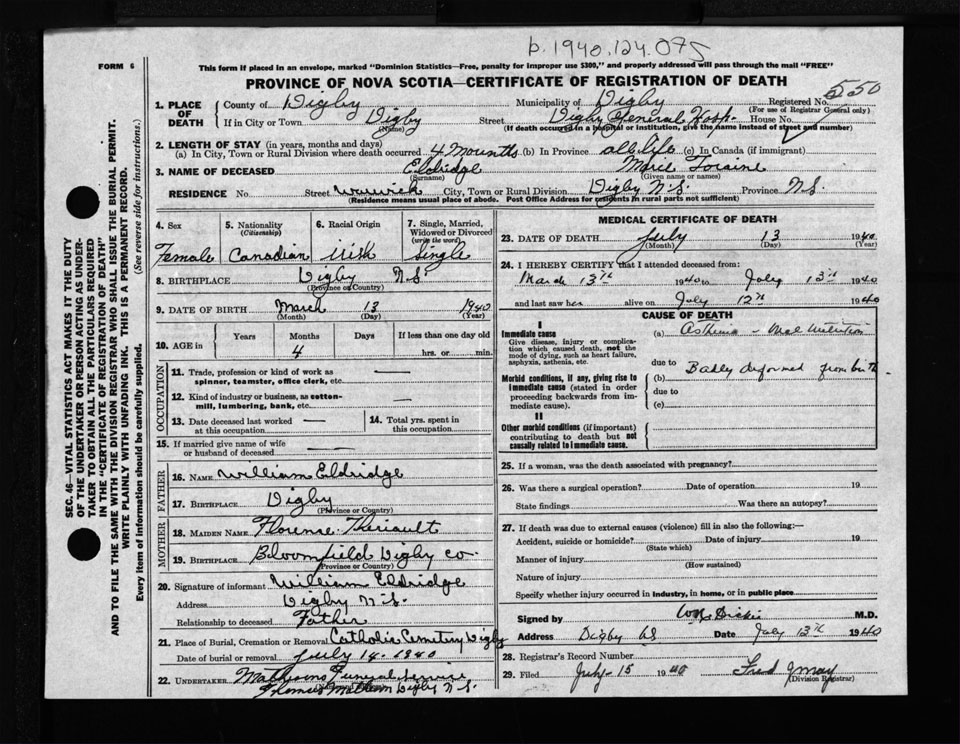 b.1940.124.075
FORM 6
This form if placed in an envelope, marked "Dominion Statistics—Free, penalty for improper use $300," and properly addressed will pass through the mail "FREE"
PROVINCE OF NOVA SCOTIA—CERTIFICATE OF REGISTRATION OF DEATH
SEC. 46—VITAL STATISTICS ACT MAKES IT THE DUTY
OF THE UNDERTAKER OR PERSON ACTING AS UNDER-
TAKER TO OBTAIN ALL THE PARTICULARS REQUIRED
IN THE "CERTIFICATE OF REGISTRATION OF DEATH"
AND TO FILE THE SAME WITH THE DIVISION REGISTRAR WHO SHALL ISSUE THE BURIAL PERMIT.
WRITE PLAINLY WITH UNFADING INK. THIS IS A PERMANENT RECORD.
Every item of information should be carefully supplied. (See reverse side for instructions.)
1. PLACE OF DEATH
County of Digby Municipality of Digby Registered No. 550
(For use of Registrar General only)
If in City or Town Digby Street Digby General Hosp. House No.
(Name) (If death occurred in a hospital or institution, give the name instead of street and number)
2. LENGTH OF STAY (in years, months and days)
(a) In City, Town or Rural Division where death occurred 4 Mounths (b) In Province all life (c) In Canada (if immigrant)
3. NAME OF DECEASED Eldridge Marie
(Surname) (Given name or names)
RESIDENCE No. Street Warwick City, Town or Rural Division Digby N.S. Province N.S.
(Residence means usual place of abode. Post Office Address for residents in rural parts not sufficient)
4. Sex
Female
5. Nationality
(Citizenship)
Canadian
6. Racial Origin
irish
7. Single, Married,
Widowed or Divorced
(write the word)
Single
8. BIRTHPLACE Digby N.S.
(Province or Country)
9. DATE OF BIRTH March 13 1940
(Month) (Day) (Year)
10. AGE in Years Months Days If less than one day old
4 hrs. or min.
OCCUPATION
11. Trade, profession or kind of work as
spinner, teamster, office clerk, etc. —
12. Kind of industry or business, as cotton-
mill, lumbering, bank, etc. —
13. Date deceased last worked
at this occupation —
14. Total yrs. spent in
this occupation
15. If married give name of wife
or husband of deceased —
FATHER
16. NAME William Eldridge
17. BIRTHPLACE Digby
(Province or Country)
MOTHER
18. MAIDEN NAME Florence Theriault
19. BIRTHPLACE Bloomfield Digby Co.
(Province or Country)
20. Signature of informant William Eldridge
Address Digby N.S.
Relationship to deceased Father
21. Place of Burial, Cremation or Removal Catholic Cemetery Digby
Date of burial or removal July 14 - 1940
22. UNDERTAKER Funeral Service
Digby N.S.
MEDICAL CERTIFICATE OF DEATH
23. DATE OF DEATH July 13 1940
(Month) (Day) (Year)
24. I HEREBY CERTIFY that I attended deceased from:
March 13th 1940 to July 13th 1940
and last saw her alive on July 12th 1940
CAUSE OF DEATH
I
Immediate cause
Give disease, injury or complica-
tion which caused death, not the
mode of dying, such as heart failure,
asphyxia, asthenia, etc.
Morbid conditions, if any, giving rise to
immediate cause (stated in order
proceeding backwards from im-
mediate cause).
II
Other morbid conditions (if important)
contributing to death but not
causally related to immediate cause.
(a) Mal nutrition
due to
(b) Badly deformed from birth
due to
(c)
25. If a woman, was the death associated with pregnancy?
26. Was there a surgical operation? Date of operation 19
State findings Was there an autopsy?
27. If death was due to external causes (violence) fill in also the following:—
Accident, suicide or homicide? Date of injury 19
(State which)
Manner of injury
(How sustained)
Nature of injury
Specify whether injury occurred in industry, in home, or in public place
Signed by Dickie M.D.
Address Digby NS Date July 13th 1940
28. Registrar's Record Number
29. Filed July - 15 1940 Fred May
(Division Registrar)